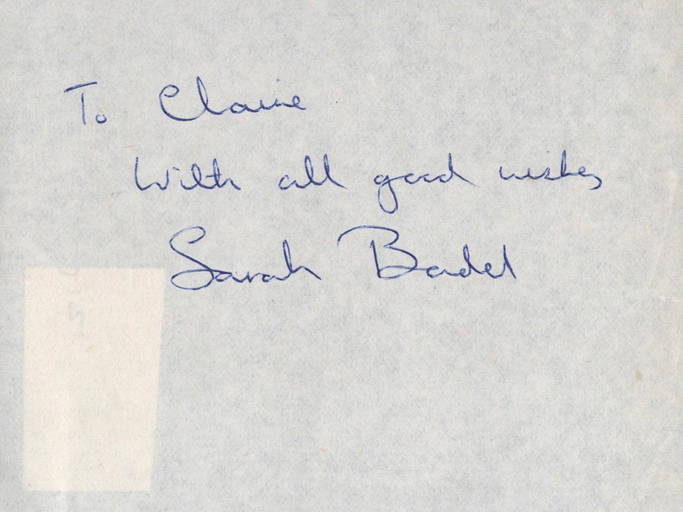 To Claire
With all good wishes
Sarah Badel